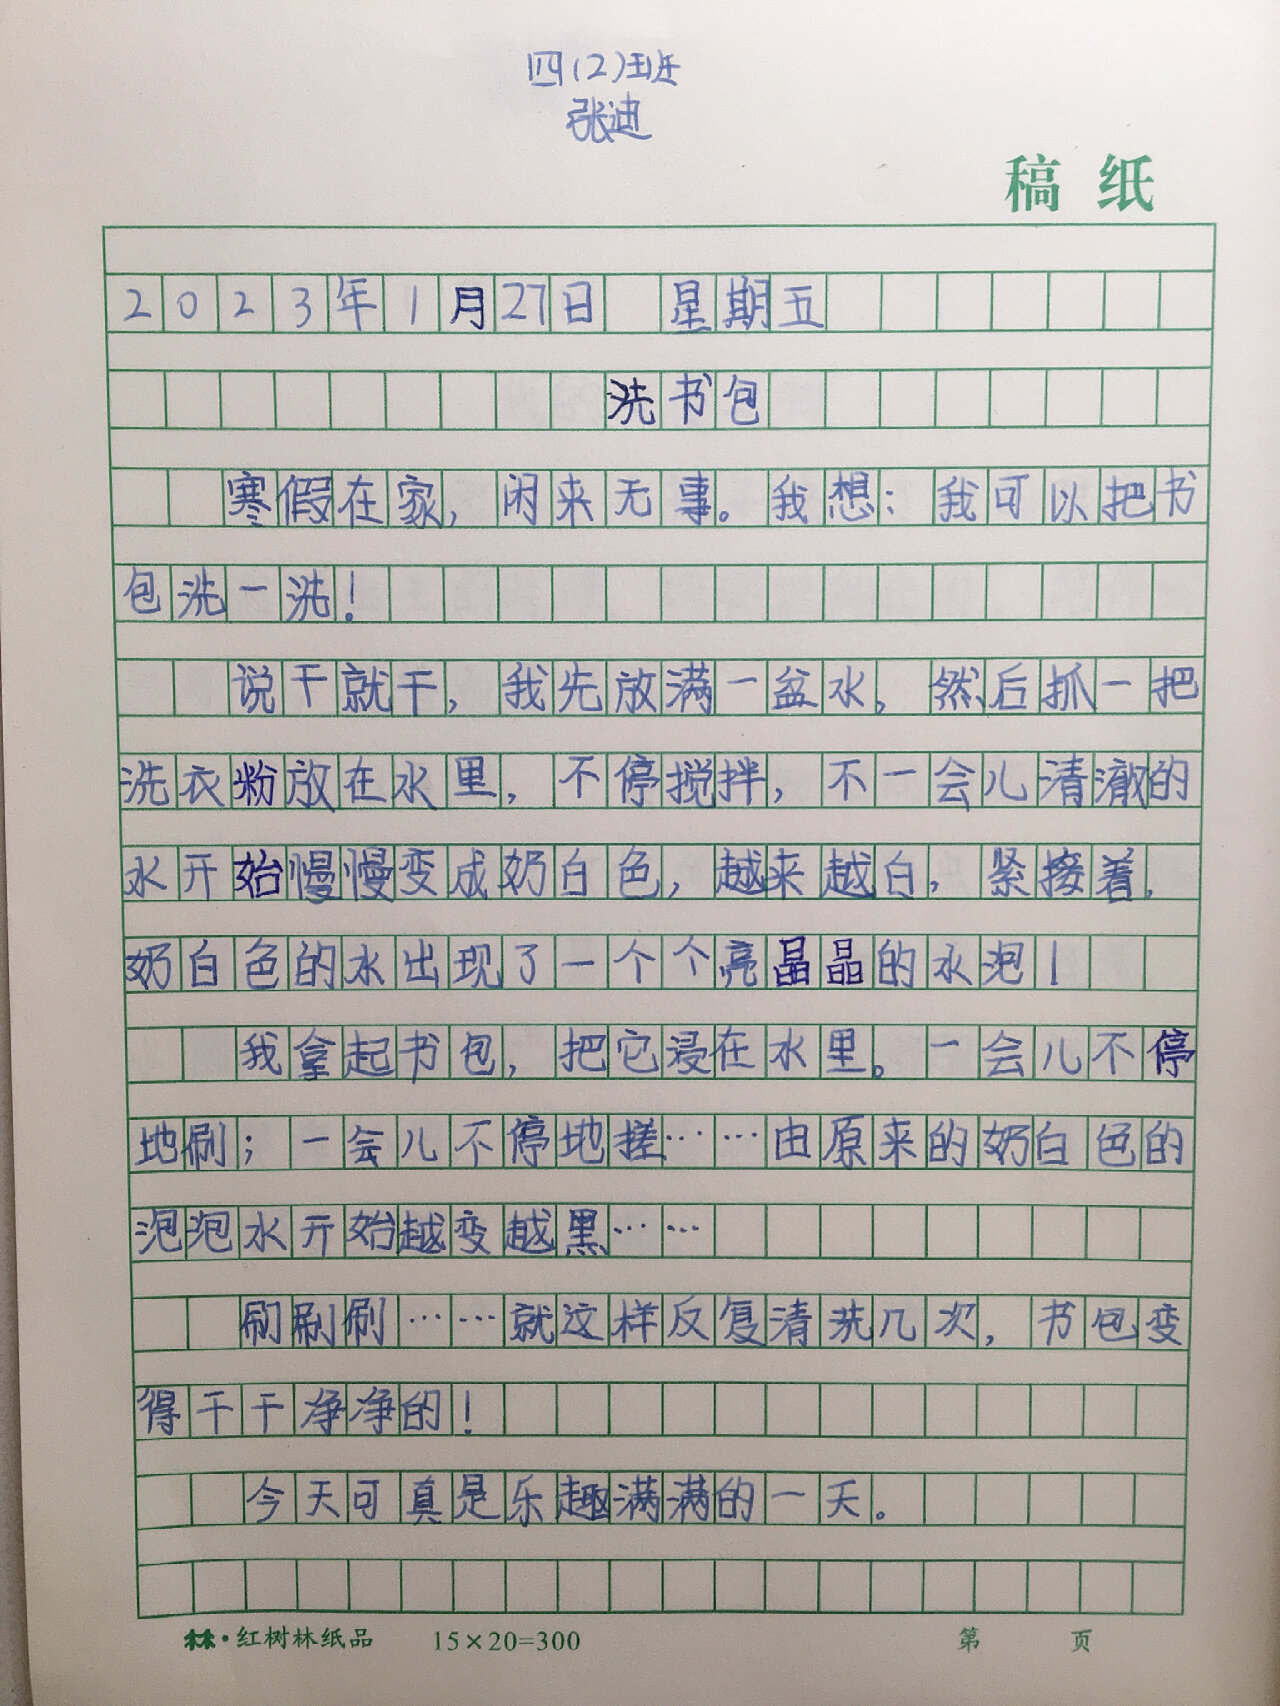 四（2）班
张迪
稿 纸
2023年1月27日 星期五
洗书包
寒假在家，闲来无事。我想：我可以把书
包洗一洗！
说干就干，我先放满一盆水。然后抓一把
洗衣粉放在水里，不停搅拌，不一会儿清澈的
水开始慢慢变成奶白色，越来越白，紧接着，
奶白色的水出现了一个个亮晶晶的水泡！
我拿起书包，把它浸在水里。一会儿不停
地刷；一会儿不停地搓……由原来的奶白色的
泡泡水开始越变越黑……
刷刷刷……就这样反复清洗几次，书包变
得干干净净的！
今天可真是乐趣满满的一天。
林·红树林纸品 15×20=300 第 页